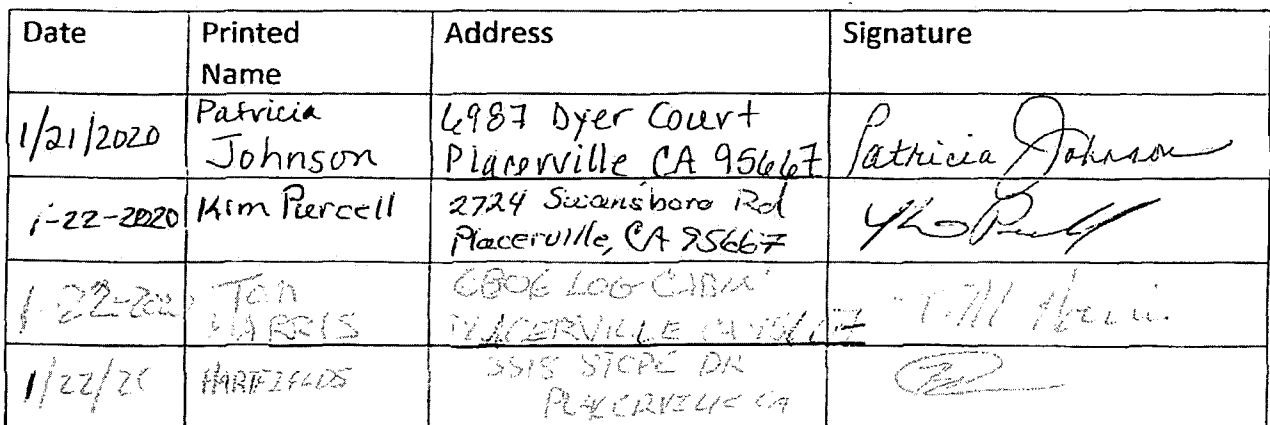 Date Printed Name Address Signature
1/21/2020 Patricia Johnson 6987 Dyer Court Placerville CA 95667 Patricia Johnson
1-22-2020 Kim Purcell 2724 Swansboro Rd Placerville, CA 95667
1-22-2020 HARRIS LOG CABIN PLACERVILLE CA 95667
1/22/20 DR PLACERVILLE CA